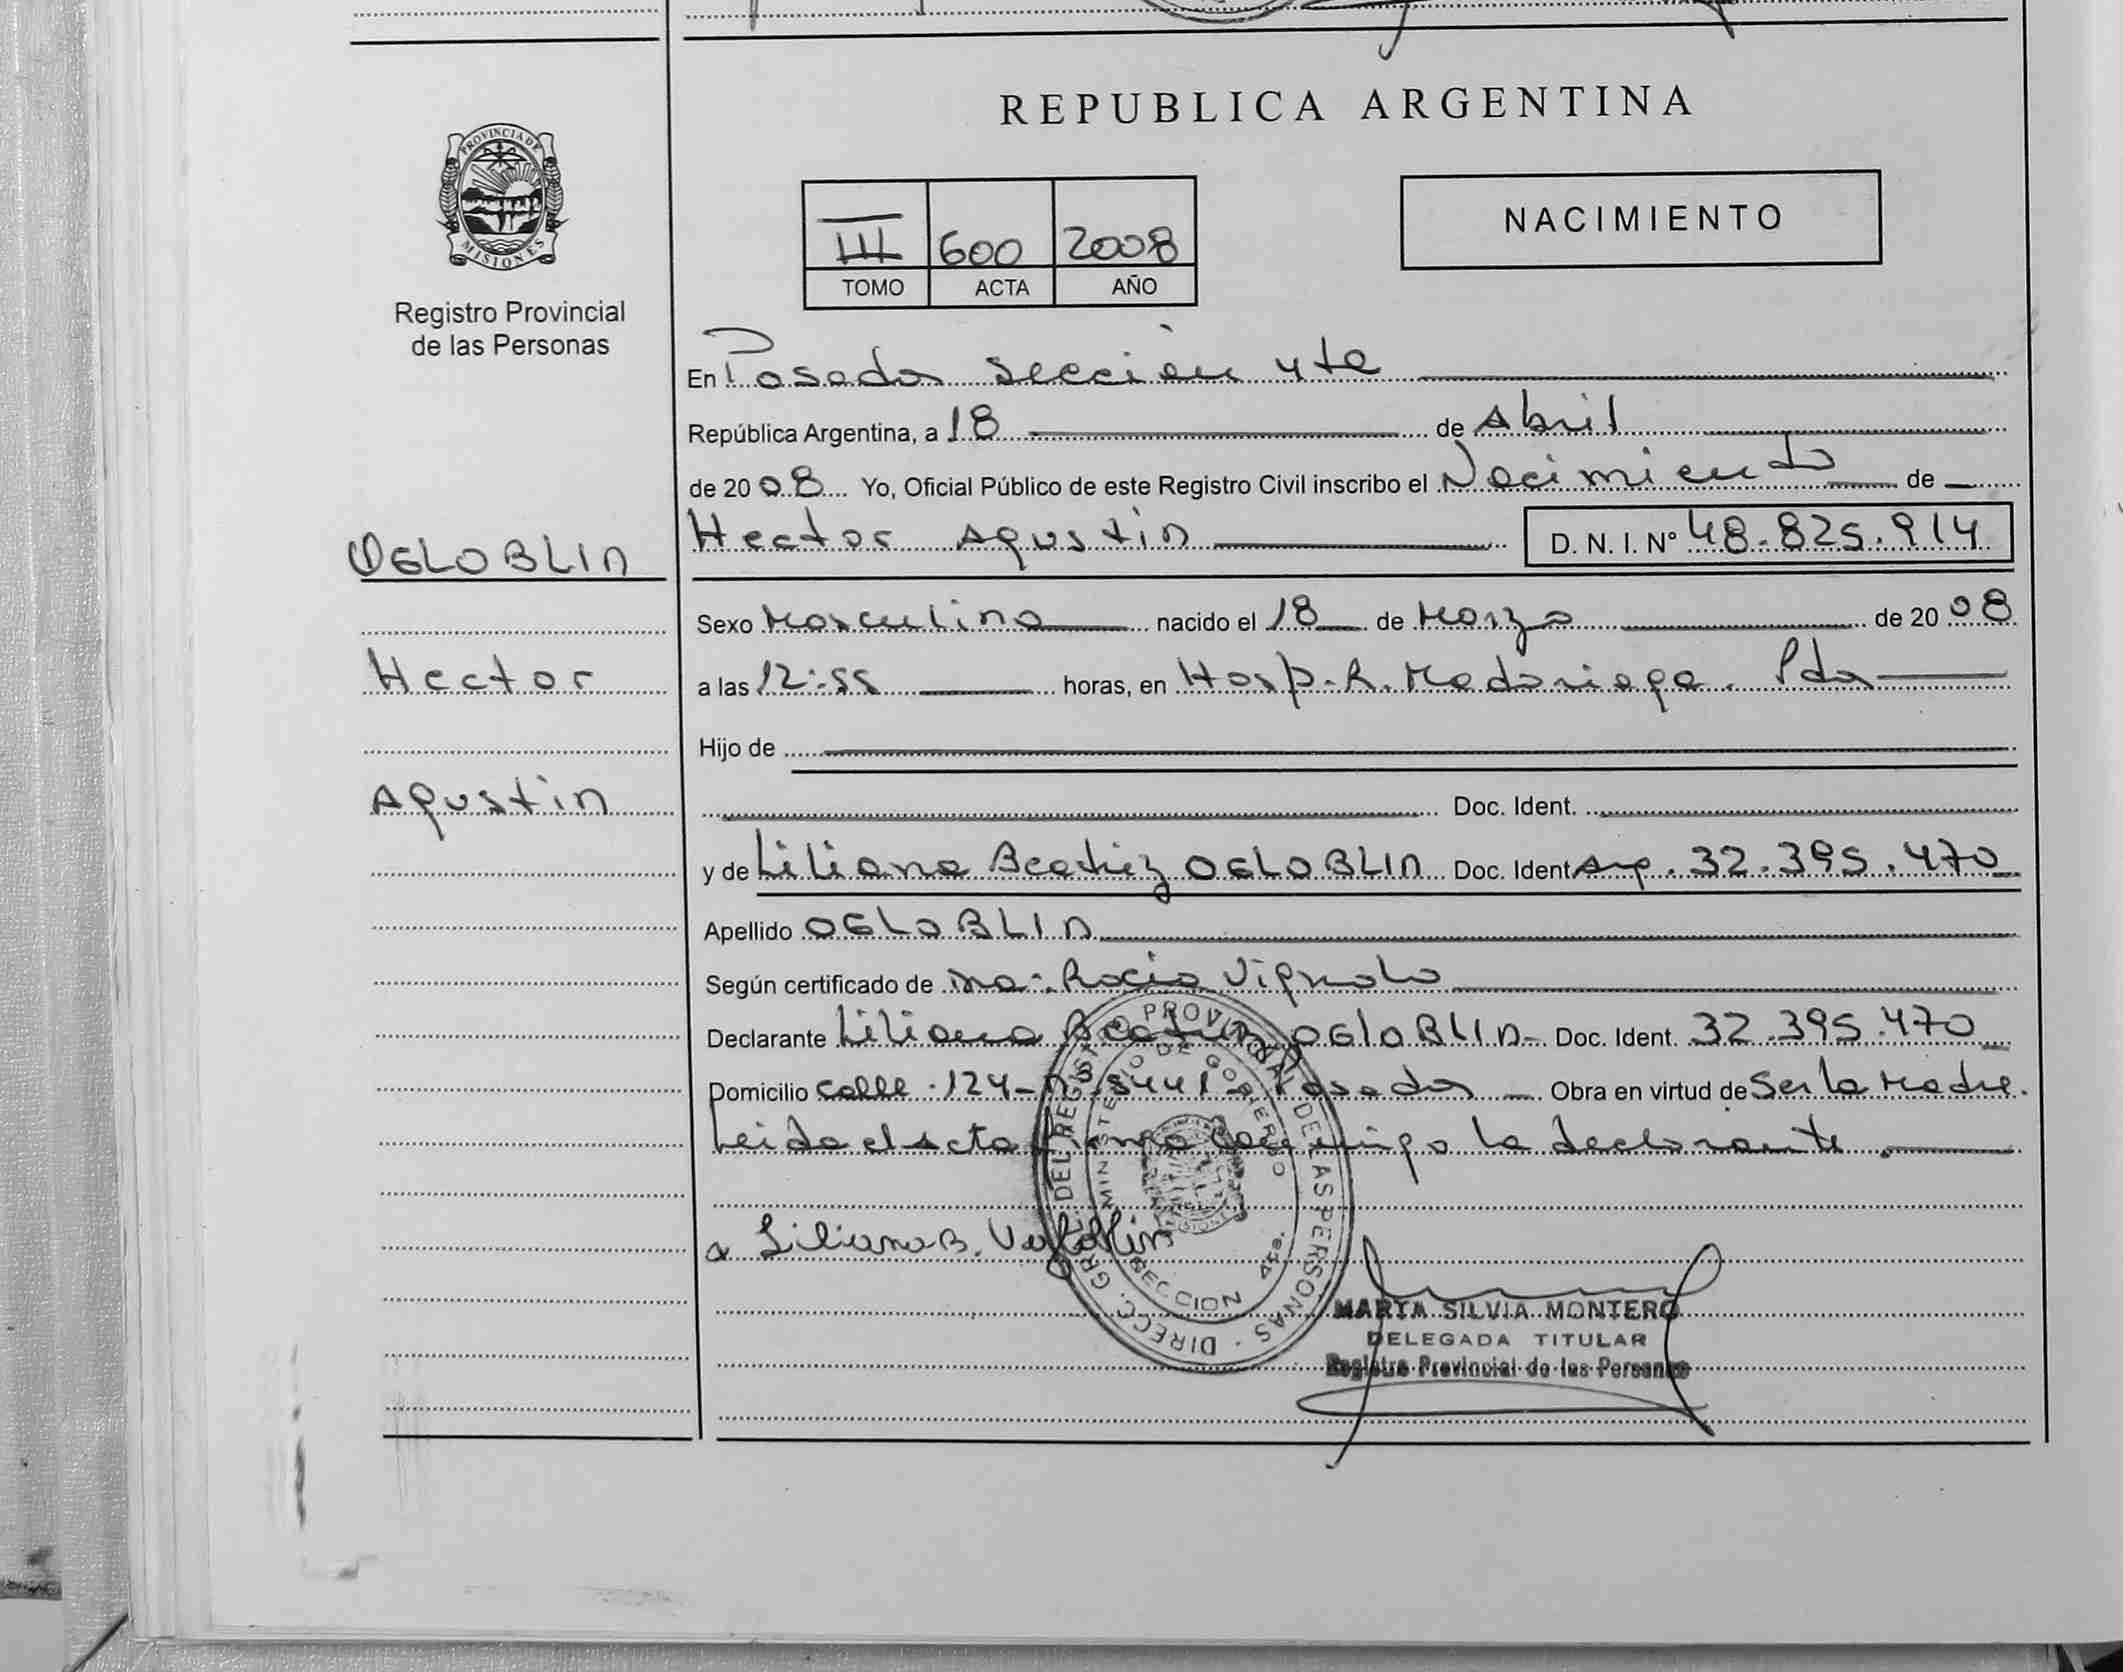 REPUBLICA ARGENTINA
PROVINCIA DE
MISIONES
Registro Provincial
de las Personas
III 600 2008
TOMO ACTA AÑO
NACIMIENTO
En Posadas Sección 4ta
República Argentina, a 18 de Abril
de 2008 Yo, Oficial Público de este Registro Civil inscribo el Nacimiento de
OGLOBLIN
Hector Agustin D. N. I. Nº 48.825.914
Sexo Masculino nacido el 18 de Marzo de 2008
Hector
a las 12:55 horas, en Hosp. R. Madariaga. Pdas
Hijo de
Agustin
Doc. Ident.
y de Liliana Beatriz OGLOBLIN Doc. Ident. Arg. 32.395.470
Apellido OGLOBLIN
Según certificado de Ma. Rocio Vignolo
Declarante Liliana Beatriz OGLOBLIN Doc. Ident. 32.395.470
Domicilio calle 124 - nº 8441 - Posadas Obra en virtud de Ser la Madre.
Leida el acta firma conmigo la declarante.
Liliana B.
DIRECC. GRAL. DEL REGISTRO PROVINCIAL DE LAS PERSONAS
MINISTERIO DE GOBIERNO
SECCION 4ta.
MARTA SILVIA MONTERO
DELEGADA TITULAR
Registro Provincial de las Personas